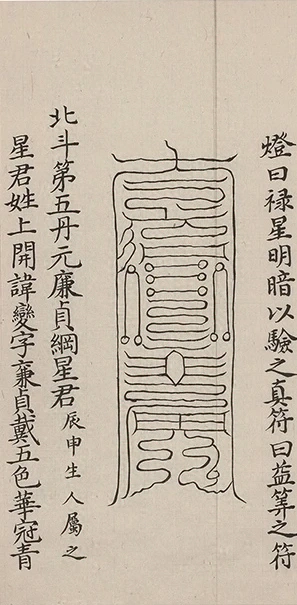 燈曰禄星明暗以驗之真符曰益筭之符
北斗第五丹元廉貞綱星君辰申生人屬之
星君姓上開諱變字亷貞戴五色華冠青